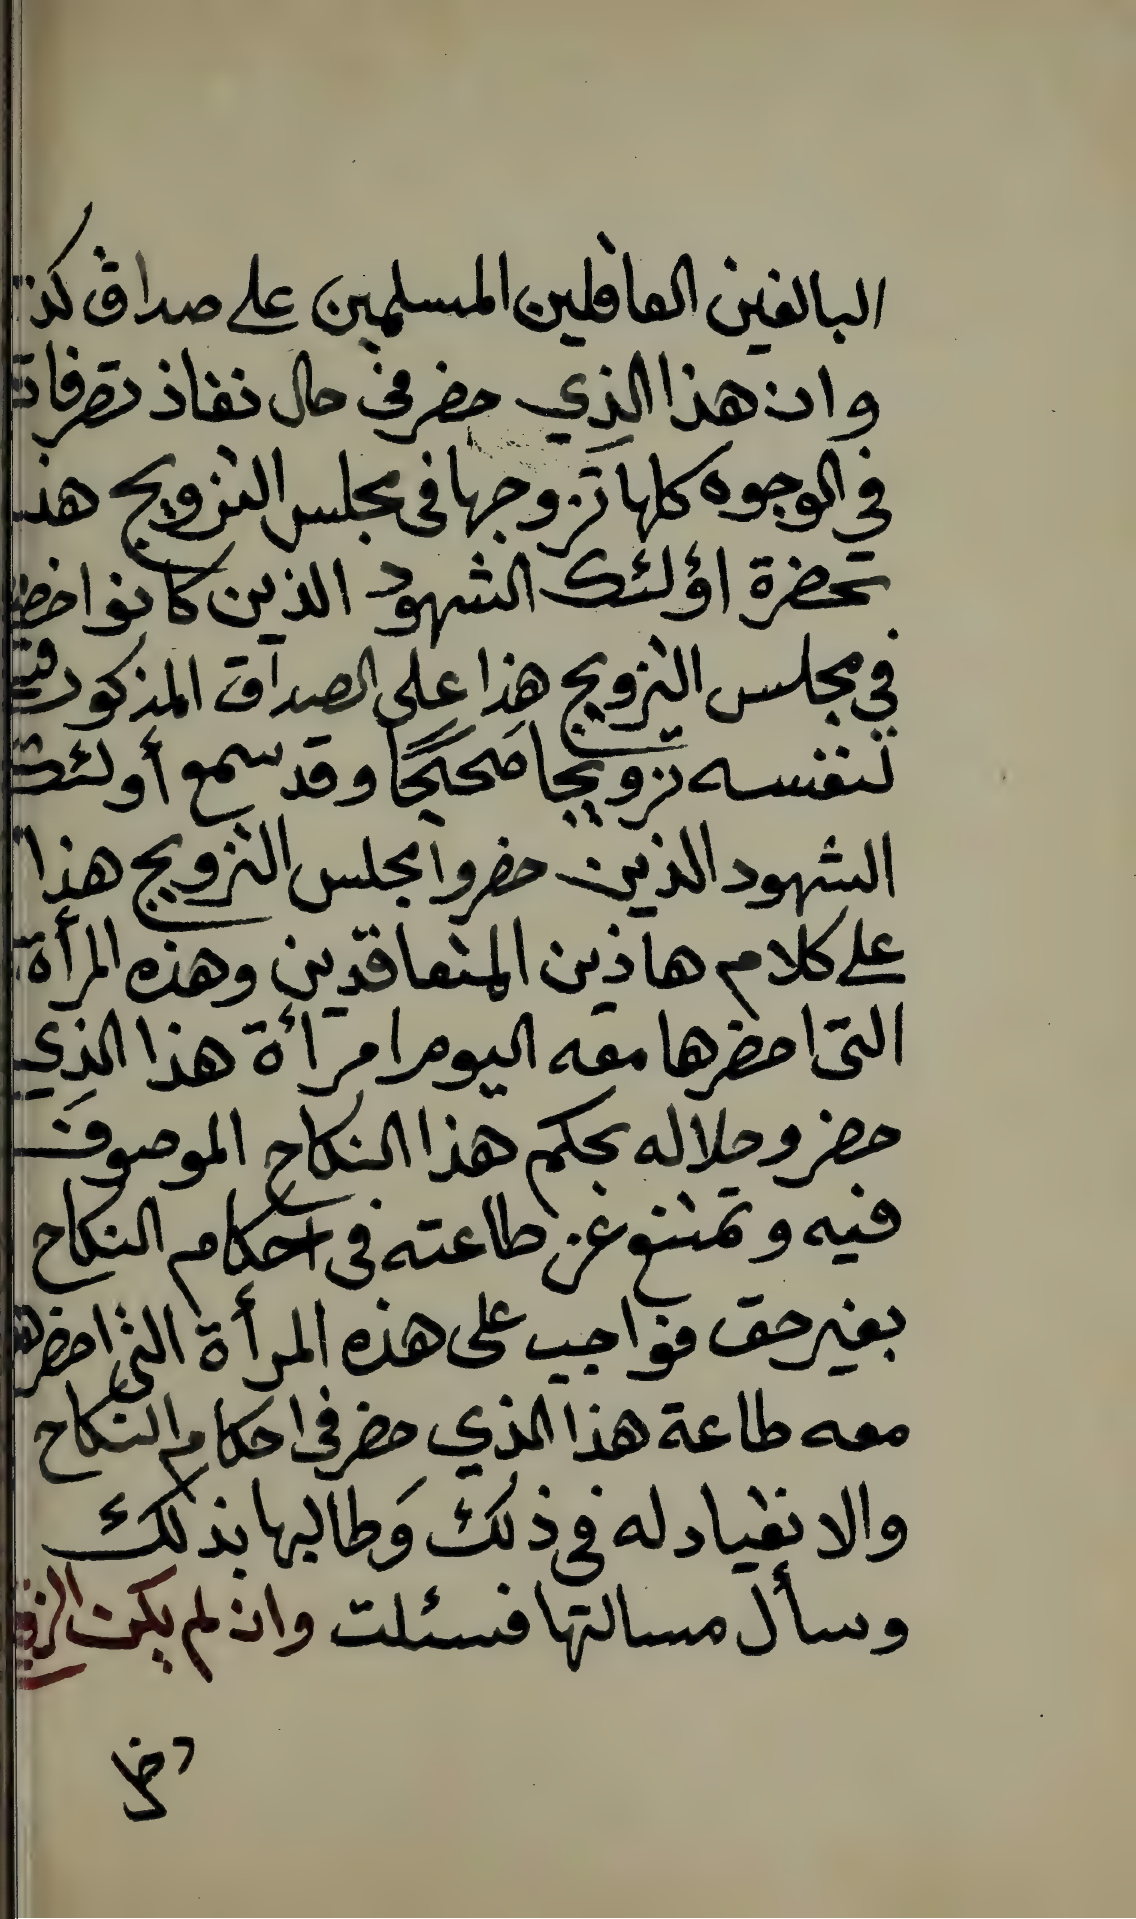 البالغين العاقلين المسلمين على صداق كذا
وان هذا الذي حضر في حال نفاذ تصرفاته
في الوجوه كلها تزوجها في مجلس التزويج هذا
بحضرة اؤلئك الشهود الذين كانوا حضر
في مجلس التزويج هذا على الصداق المذكور فيه
لنفسه تزويجا صحيحًا وقد سمع أولئك
الشهود الذين حضروا مجلس التزويج هذا
على كلام هاذين المتعاقدين وهذه المرأة
التي احضرها معه اليوم امرأة هذا الذي
حضر وحلاله بحكم هذا النكاح الموصوف
فيه وتمتنع عن طاعته في احكام النكاح
بغير حق فواجب على هذه المرأة التي احضرها
معه طاعة هذا الذي حضر في احكام النكاح
والانقياد له في ذلك وَطالبها بذلك
وسأل مسالتها فسئلت وان لم يكن الزوج
دخل